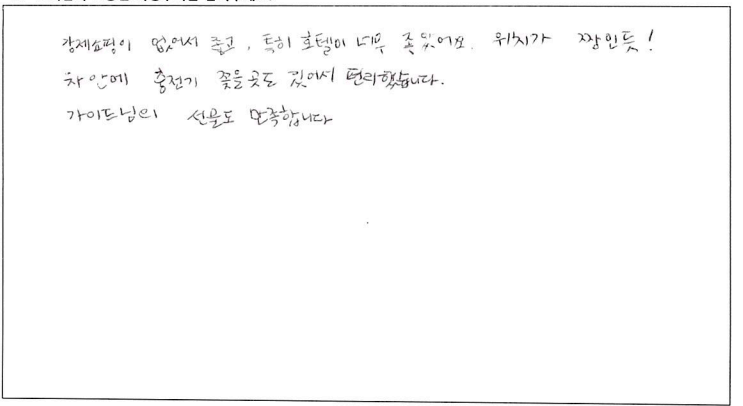 강제쇼핑이 없어서 좋고, 특히 호텔이 너무 좋았어요. 위치가 짱인듯!
차 안에 충전기 꽂을 곳도 있어서 편리했습니다.
가이드님의 선물도 만족합니다